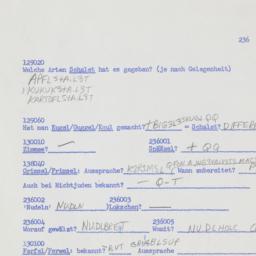 236
129020
Welche Arten Schalet hat es gegeben? (je nach Gelegenheit)
APFLSHALƏT
KUKUKSHALƏT
KARTOFLSHALƏT
129060
Hat man Kugel/Guggel/Koul gemacht? = Schalet? DIFFERE
130010 236001
Zimmes? — Spätzel? + QQ
138040
Grimsel/Frimsel: Aussprache? KRIMSL Wann zubereitet?
Auch bei Nichtjuden bekannt? — Q-T
236002 236003
'Nudeln' NUDLN Lokschen? —
236004 236005
Worauf gewälzt? NUDLBRET Womit? NUDLHOLC
130100
Farfel/Ferwel: bekannt? Aussprache